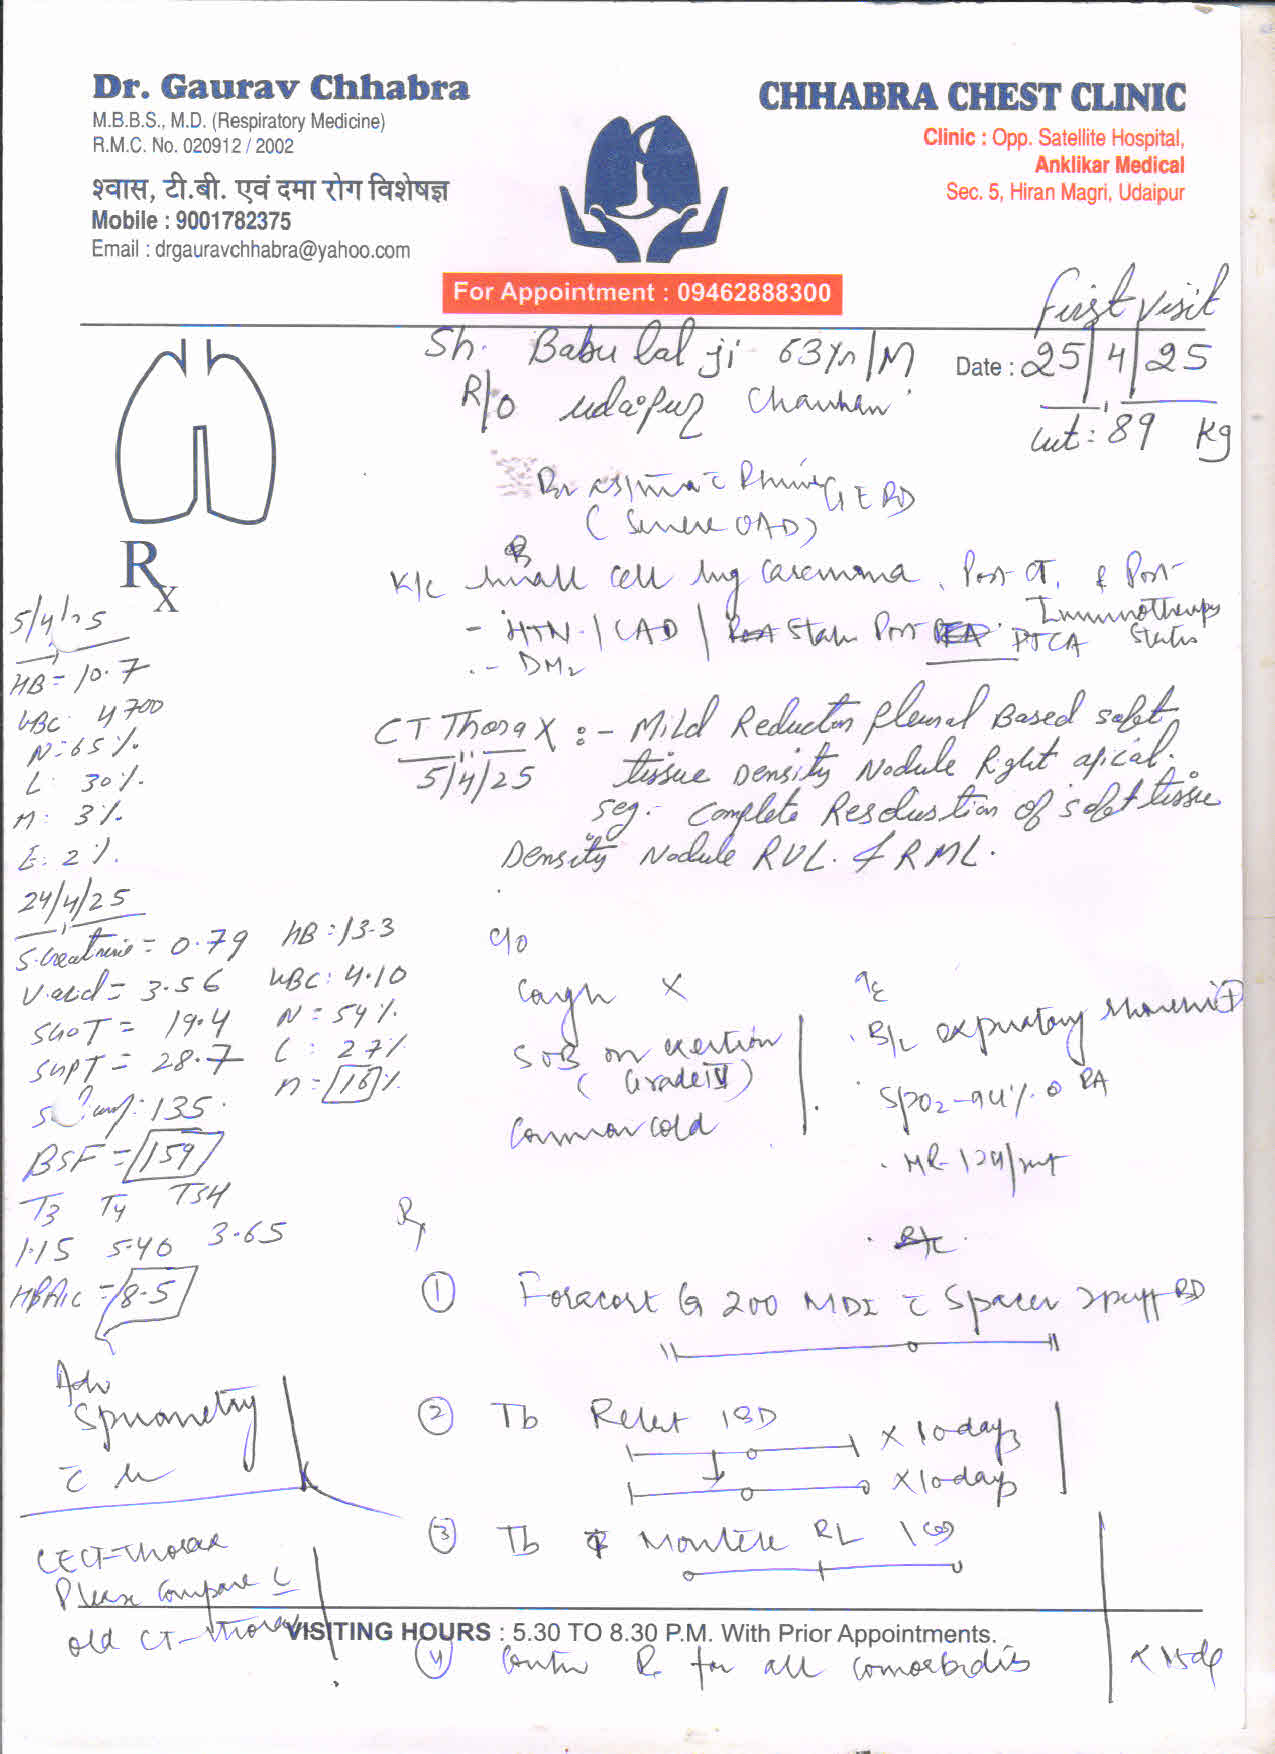 Dr. Gaurav Chhabra
M.B.B.S., M.D. (Respiratory Medicine)
R.M.C. No. 020912 / 2002
श्वास, टी.बी. एवं दमा रोग विशेषज्ञ
Mobile : 9001782375
Email : drgauravchhabra@yahoo.com
CHHABRA CHEST CLINIC
Clinic : Opp. Satellite Hospital,
Anklikar Medical
Sec. 5, Hiran Magri, Udaipur
For Appointment : 09462888300
First Visit
Sh. Babu lal ji 63yr/M
Date : 25/4/25
R/o Udaipur Chauhan
wt: 89 kg
GERD
(Severe OAD)
K/c small cell lung carcinoma, Post CT, & Post-
Immunotherapy
- HTN / CAD / Post PTCA Status
- DM2
CT Thorax :- Mild Reduction pleural Based soft
5/4/25 tissue Density Nodule Right apical.
seg. Complete Resolution of soft tissue
Density Nodule RUL. & RML.
5/4/25
HB = 10.7
WBC 4700
N: 65 %
L: 30 %
M: 3%
E: 2 %.
24/4/25
S.Creatinine = 0.79 HB : 13.3
U.acid = 3.56 WBC: 4.10
SGOT = 19.4 N = 59 %
SGPT = 28.7 L : 27%
135 M = 16 %
BSF = 159
T3 T4 TSH
1.15 5.46 3.65
HBA1c = 8.5
Adv
Spirometry
CECT-Thorax
Please Compare c
old CT-Thorax
c/o
Cough X
SOB on exertion
(Grade IV)
Common cold
O/E
B/L expiratory rhonchi +
SPO2-94% @ RA
HR-124/mt
Rx
① Foracort G 200 MDI c Spacer 2puff BD
② Tb 1BD
X 10 days
X 10 days
③ Tb Montere RL
VISITING HOURS : 5.30 TO 8.30 P.M. With Prior Appointments.
④ Contin Rx for all comorbidities